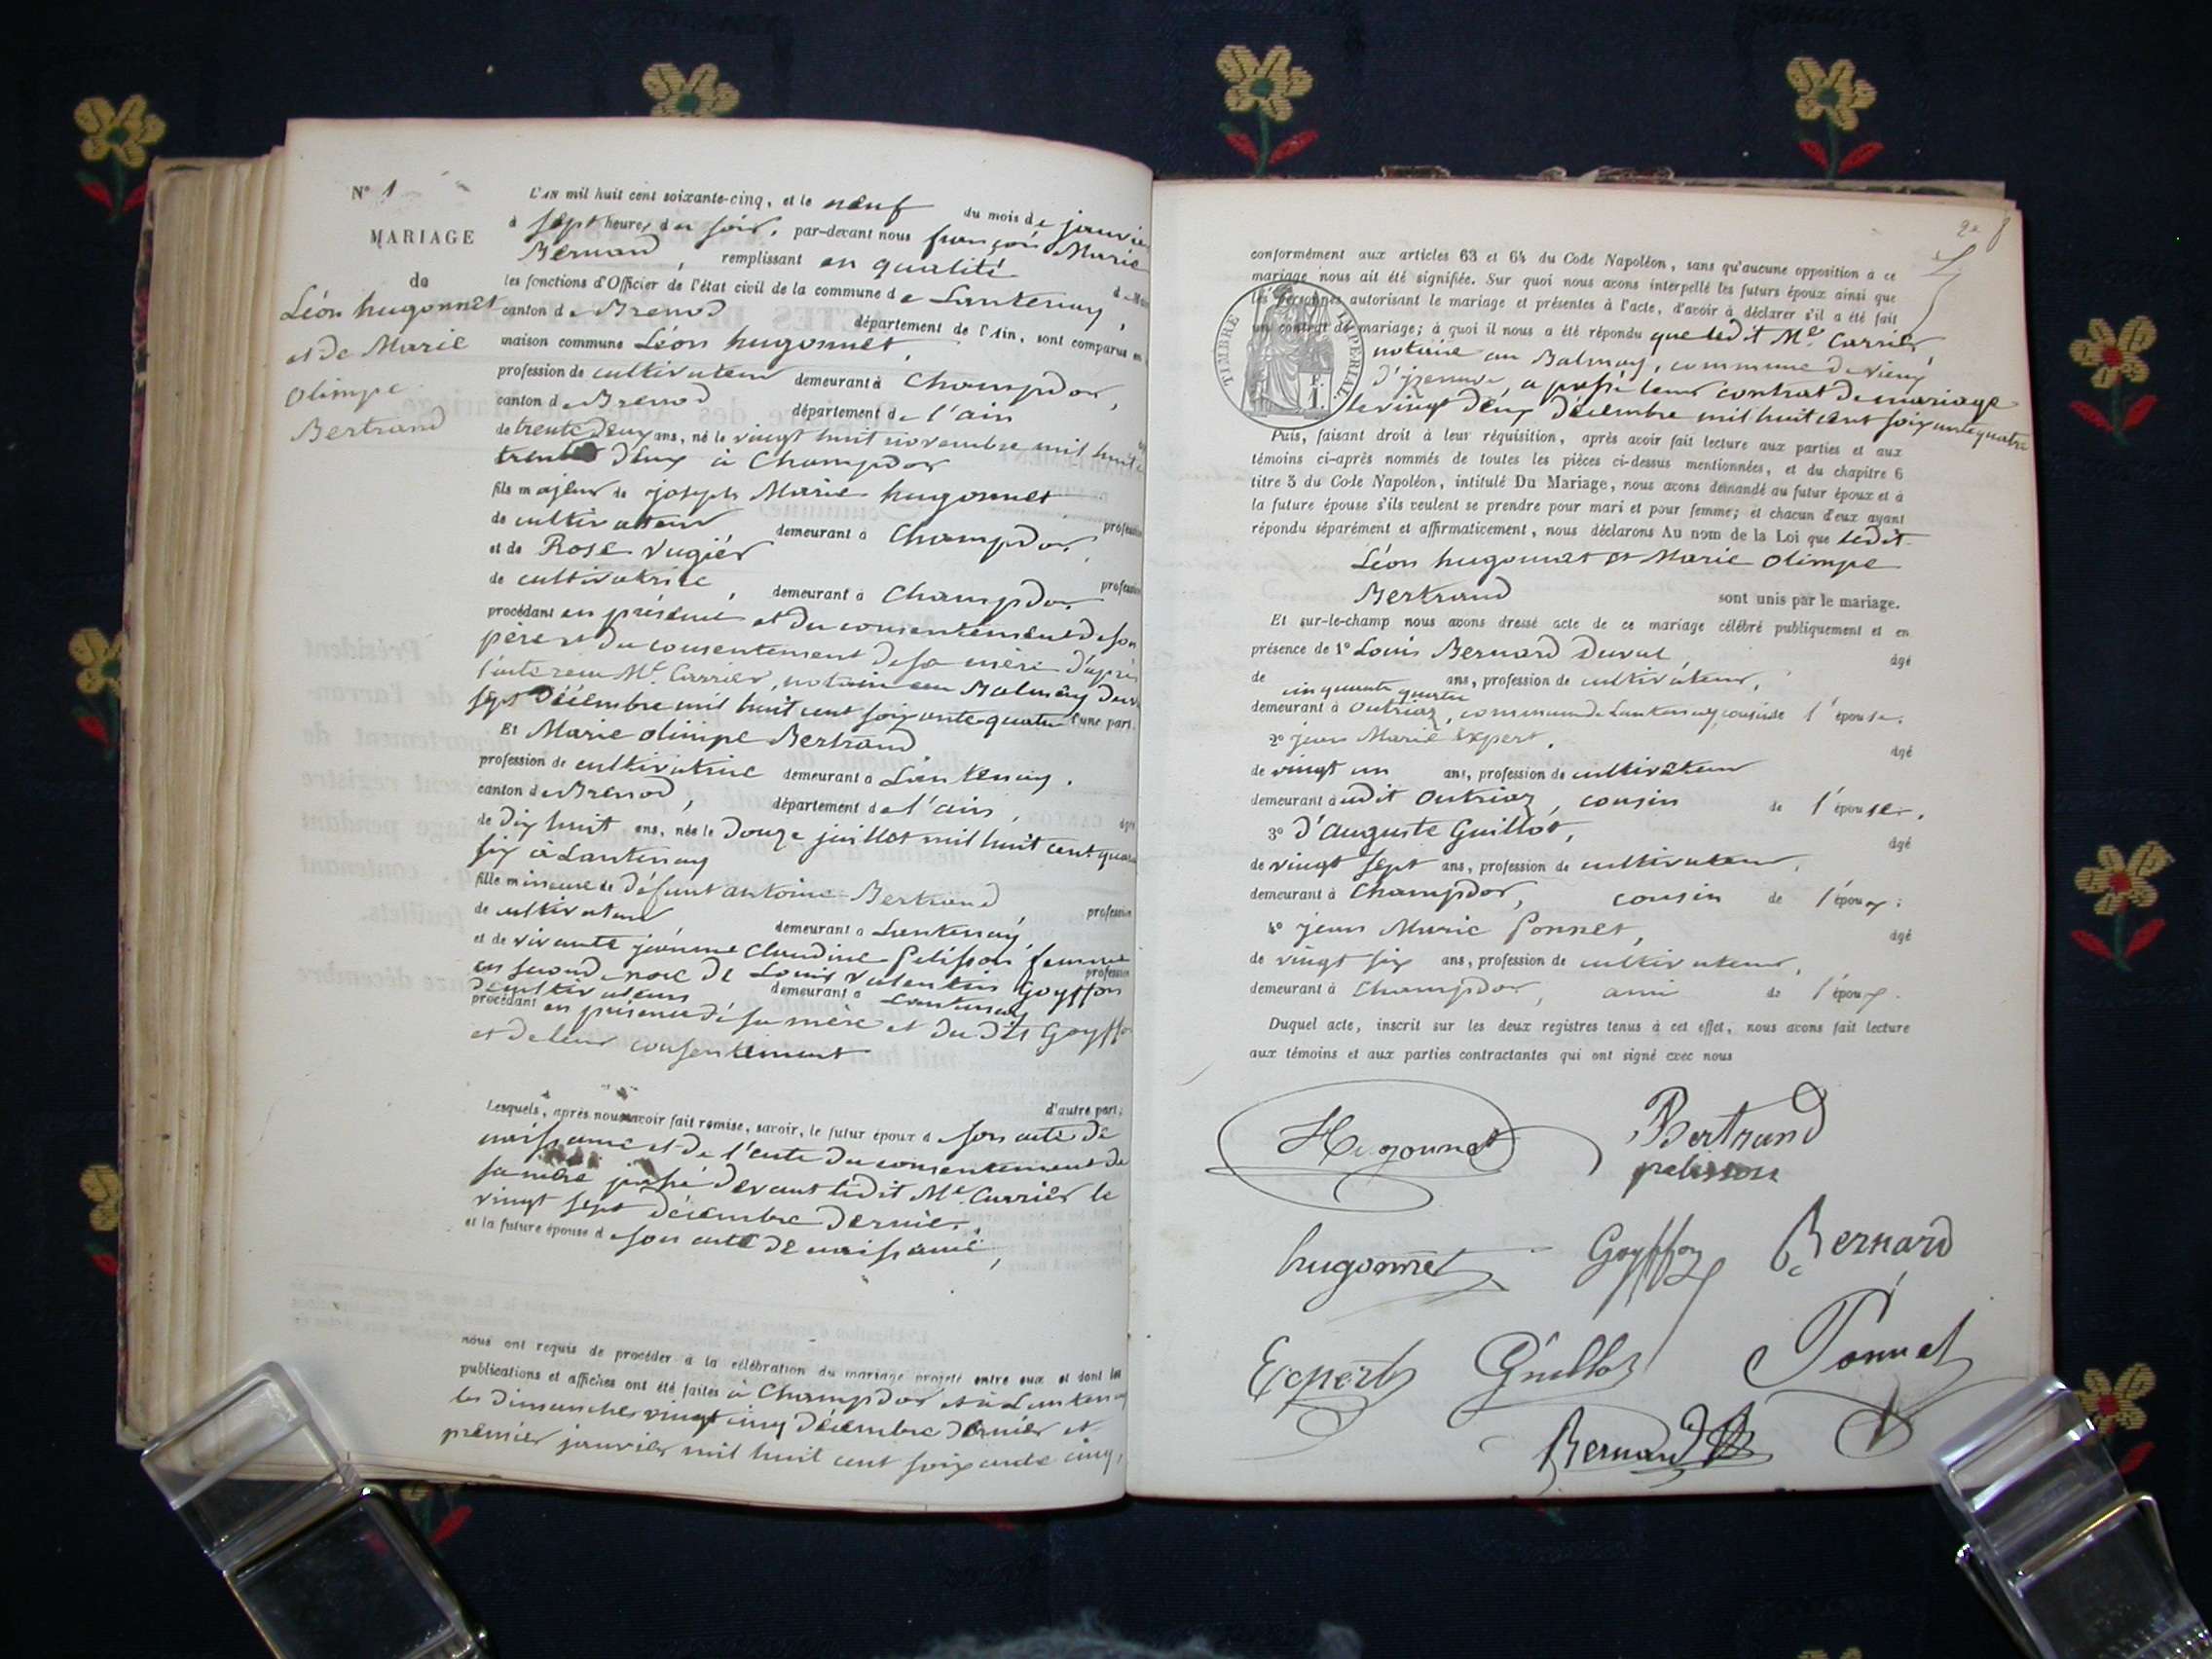 N° 1
MARIAGE
de
Léon hugonnet
et de Marie
Olimpe
Bertrand
L'AN mil huit cent soixante-cinq, et le neuf du mois de janvier
à sept heures du soir, par-devant nous françois Marie
Bernard, remplissant en qualité de
les fonctions d'Officier de l'état civil de la commune de Lantenay,
canton de Brenod département de l'Ain, sont comparus en
maison commune Léon hugonnet,
profession de cultivateur demeurant à Champdor,
canton de Brenod département de l'ain
de trente deux ans, né le vingt huit novembre mil huit
trente deux à Champdor
fils majeur de joseph Marie hugonnet
profession
de cultivateur demeurant à Champdor,
et de Rose Vugier
profession
de cultivatrice, demeurant à Champdor
procédant en présence et du consentement de son
père et du consentement de sa mère d'après
l'acte reçu Me Carrier, notaire au Balmay du vingt
sept Décembre mil huit cent soixante quatre d'une part.
Et Marie olimpe Bertrand
profession de cultivatrice demeurant à Lantenay,
canton de Brenod, département de l'ain,
de dix huit ans, née le douze juillet mil huit cent quarante
six à Lantenay
fille mineure de défunt antoine Bertrand
profession
de cultivateur demeurant à Lantenay,
et de vivante jeanne Claudine Pelisson femme
en seconde noce de Louis Valentin Goyffon
profession
de cultivateurs demeurant à Lantenay
procédant en présence de sa mère et du dit Goyffon
et de leur consentement
d'autre part;
Lesquels, après nous avoir fait remise, savoir, le futur époux de son acte de
naissance et de l'acte du consentement de
sa mère passé devant ledit Me Carrier le
vingt sept décembre dernier,
et la future épouse de son acte de naissance,
nous ont requis de procéder à la célébration du mariage projeté entre eux et dont les
publications et affiches ont été faites à Champdor et à Lantenay
les dimanches vingt cinq décembre dernier et
premier janvier mil huit cent soixante cinq,
conformément aux articles 63 et 64 du Code Napoléon, sans qu'aucune opposition à ce
mariage nous ait été signifiée. Sur quoi nous avons interpellé les futurs époux ainsi que
les personnes autorisant le mariage et présentes à l'acte, d'avoir à déclarer s'il a été fait
un contrat de mariage; à quoi il nous a été répondu que ledit Me Carrier,
notaire au Balmay, commune de Vieux
d'jzenave, a passé leur contrat de mariage
le vingt deux décembre mil huit cent soixante quatre
TIMBRE IMPERIAL
1 F.
Puis, faisant droit à leur réquisition, après avoir fait lecture aux parties et aux
témoins ci-après nommés de toutes les pièces ci-dessus mentionnées, et du chapitre 6
titre 5 du Code Napoléon, intitulé Du Mariage, nous avons demandé au futur époux et à
la future épouse s'ils veulent se prendre pour mari et pour femme; et chacun d'eux ayant
répondu séparément et affirmativement, nous déclarons Au nom de la Loi que ledit
Léon hugonnet et Marie olimpe
Bertrand sont unis par le mariage.
Et sur-le-champ nous avons dressé acte de ce mariage célébré publiquement et en
présence de 1° Louis Bernard Duval, âgé
de cinquante quatre ans, profession de cultivateur,
demeurant à Outriaz, commune de Lantenay cousin de l'épouse.
2° jean Marie Expert, âgé
de vingt un ans, profession de cultivateur
demeurant audit Outriaz, cousin de l'épouse.
3° d'auguste Guillot, âgé
de vingt sept ans, profession de cultivateur,
demeurant à Champdor, cousin de l'époux;
4° jean Marie Ponnet, âgé
de vingt six ans, profession de cultivateur,
demeurant à Champdor, ami de l'époux.
Duquel acte, inscrit sur les deux registres tenus à cet effet, nous avons fait lecture
aux témoins et aux parties contractantes qui ont signé avec nous
Hugonnet Bertrand
pelisson
hugonnet Goyffon Bernard
Expert Guillot Ponnet
Bernard